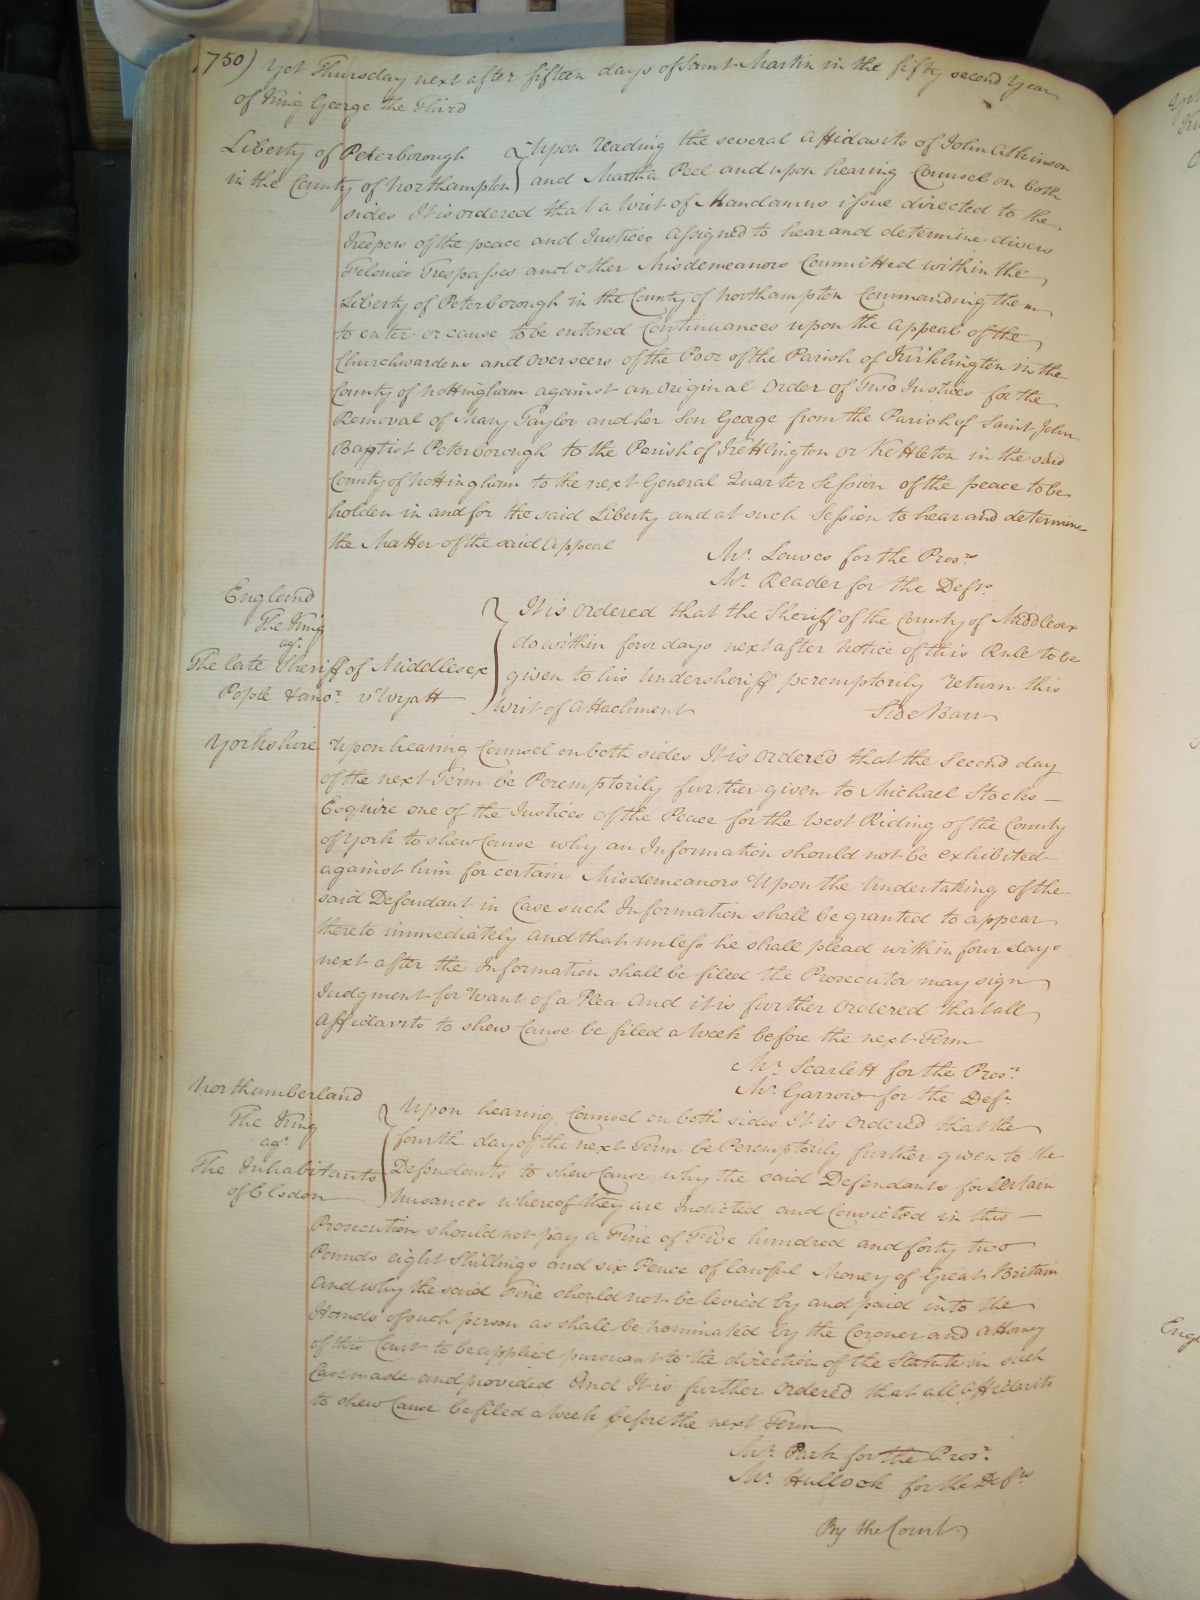 750) Yet Thursday next after fifteen days of Saint Martin in the fifty second Year
of King George the Third
Liberty of Peterborough
in the County of Northampton
Upon reading the several Affidavits of John Atkinson
and Martha Peel and upon hearing Counsel on both
sides It is ordered that a Writ of Mandamus issue directed to the
Keepers of the peace and Justices assigned to hear and determine divers
Felonies Trespasses and other Misdemeanors Committed within the
Liberty of Peterborough in the County of Northampton Commanding them
to enter or cause to be entered Continuances upon the Appeal of the
Churchwardens and Overseers of the Poor of the Parish of Kirklington in the
County of Nottingham against an original Order of Two Justices for the
Removal of Mary Taylor and her Son George from the Parish of Saint John
Baptist Peterborough to the Parish of Kettlington or Kettleton in the said
County of Nottingham to the next General Quarter Session of the peace to be
holden in and for the said Liberty and at such Session to hear and determine
the Matter of the said Appeal
Mr. Lawes for the Prosr.
Mr. Reader for the Defts.
England
The King
agt.
The late Sheriff of Middlesex
Pople v Wyatt
It is ordered that the Sheriff of the County of Middlesex
do within four days next after notice of this Rule to be
given to his Undersheriff peremptorily return this
Writ of Attachment
Side Barr
Yorkshire Upon hearing Counsel on both sides It is ordered that the second day
of the next Term be Peremptorily further given to Michael Stocks
Esquire one of the Justices of the Peace for the West Riding of the County
of York to shew Cause why an Information should not be exhibited
against him for certain Misdemeanors Upon the Undertaking of the
said Defendant in Case such Information shall be granted to appear
thereto immediately and that unless he shall plead within four days
next after the Information shall be filed the Prosecutor may sign
Judgment for Want of a Plea And it is further ordered that all
Affidavits to shew Cause be filed a Week before the next Term
Mr. Scarlett for the Prosr.
Mr. Garrow for the Deft.
Northumberland
The King
agt.
The Inhabitants
of Elsdon
Upon hearing Counsel on both sides It is ordered that the
fourth day of the next Term be Peremptorily further given to the
Defendants to shew Cause why the said Defendants for Certain
Nusances whereof they are Indicted and Convicted in this
Prosecution should not pay a Fine of Five hundred and forty two
Pounds eight Shillings and six Pence of lawful Money of Great Britain
And why the said Fine should not be levied by and paid into the
Hands of such person as shall be nominated by the Coroner and Attorney
of this Court to be applied pursuant to the direction of the Statute in such
Case made and provided And It is further ordered that all Affidavits
to shew Cause be filed a Week before the next Term
Mr. Park for the Prosr.
Mr. Hullock for the Defts.
By the Court